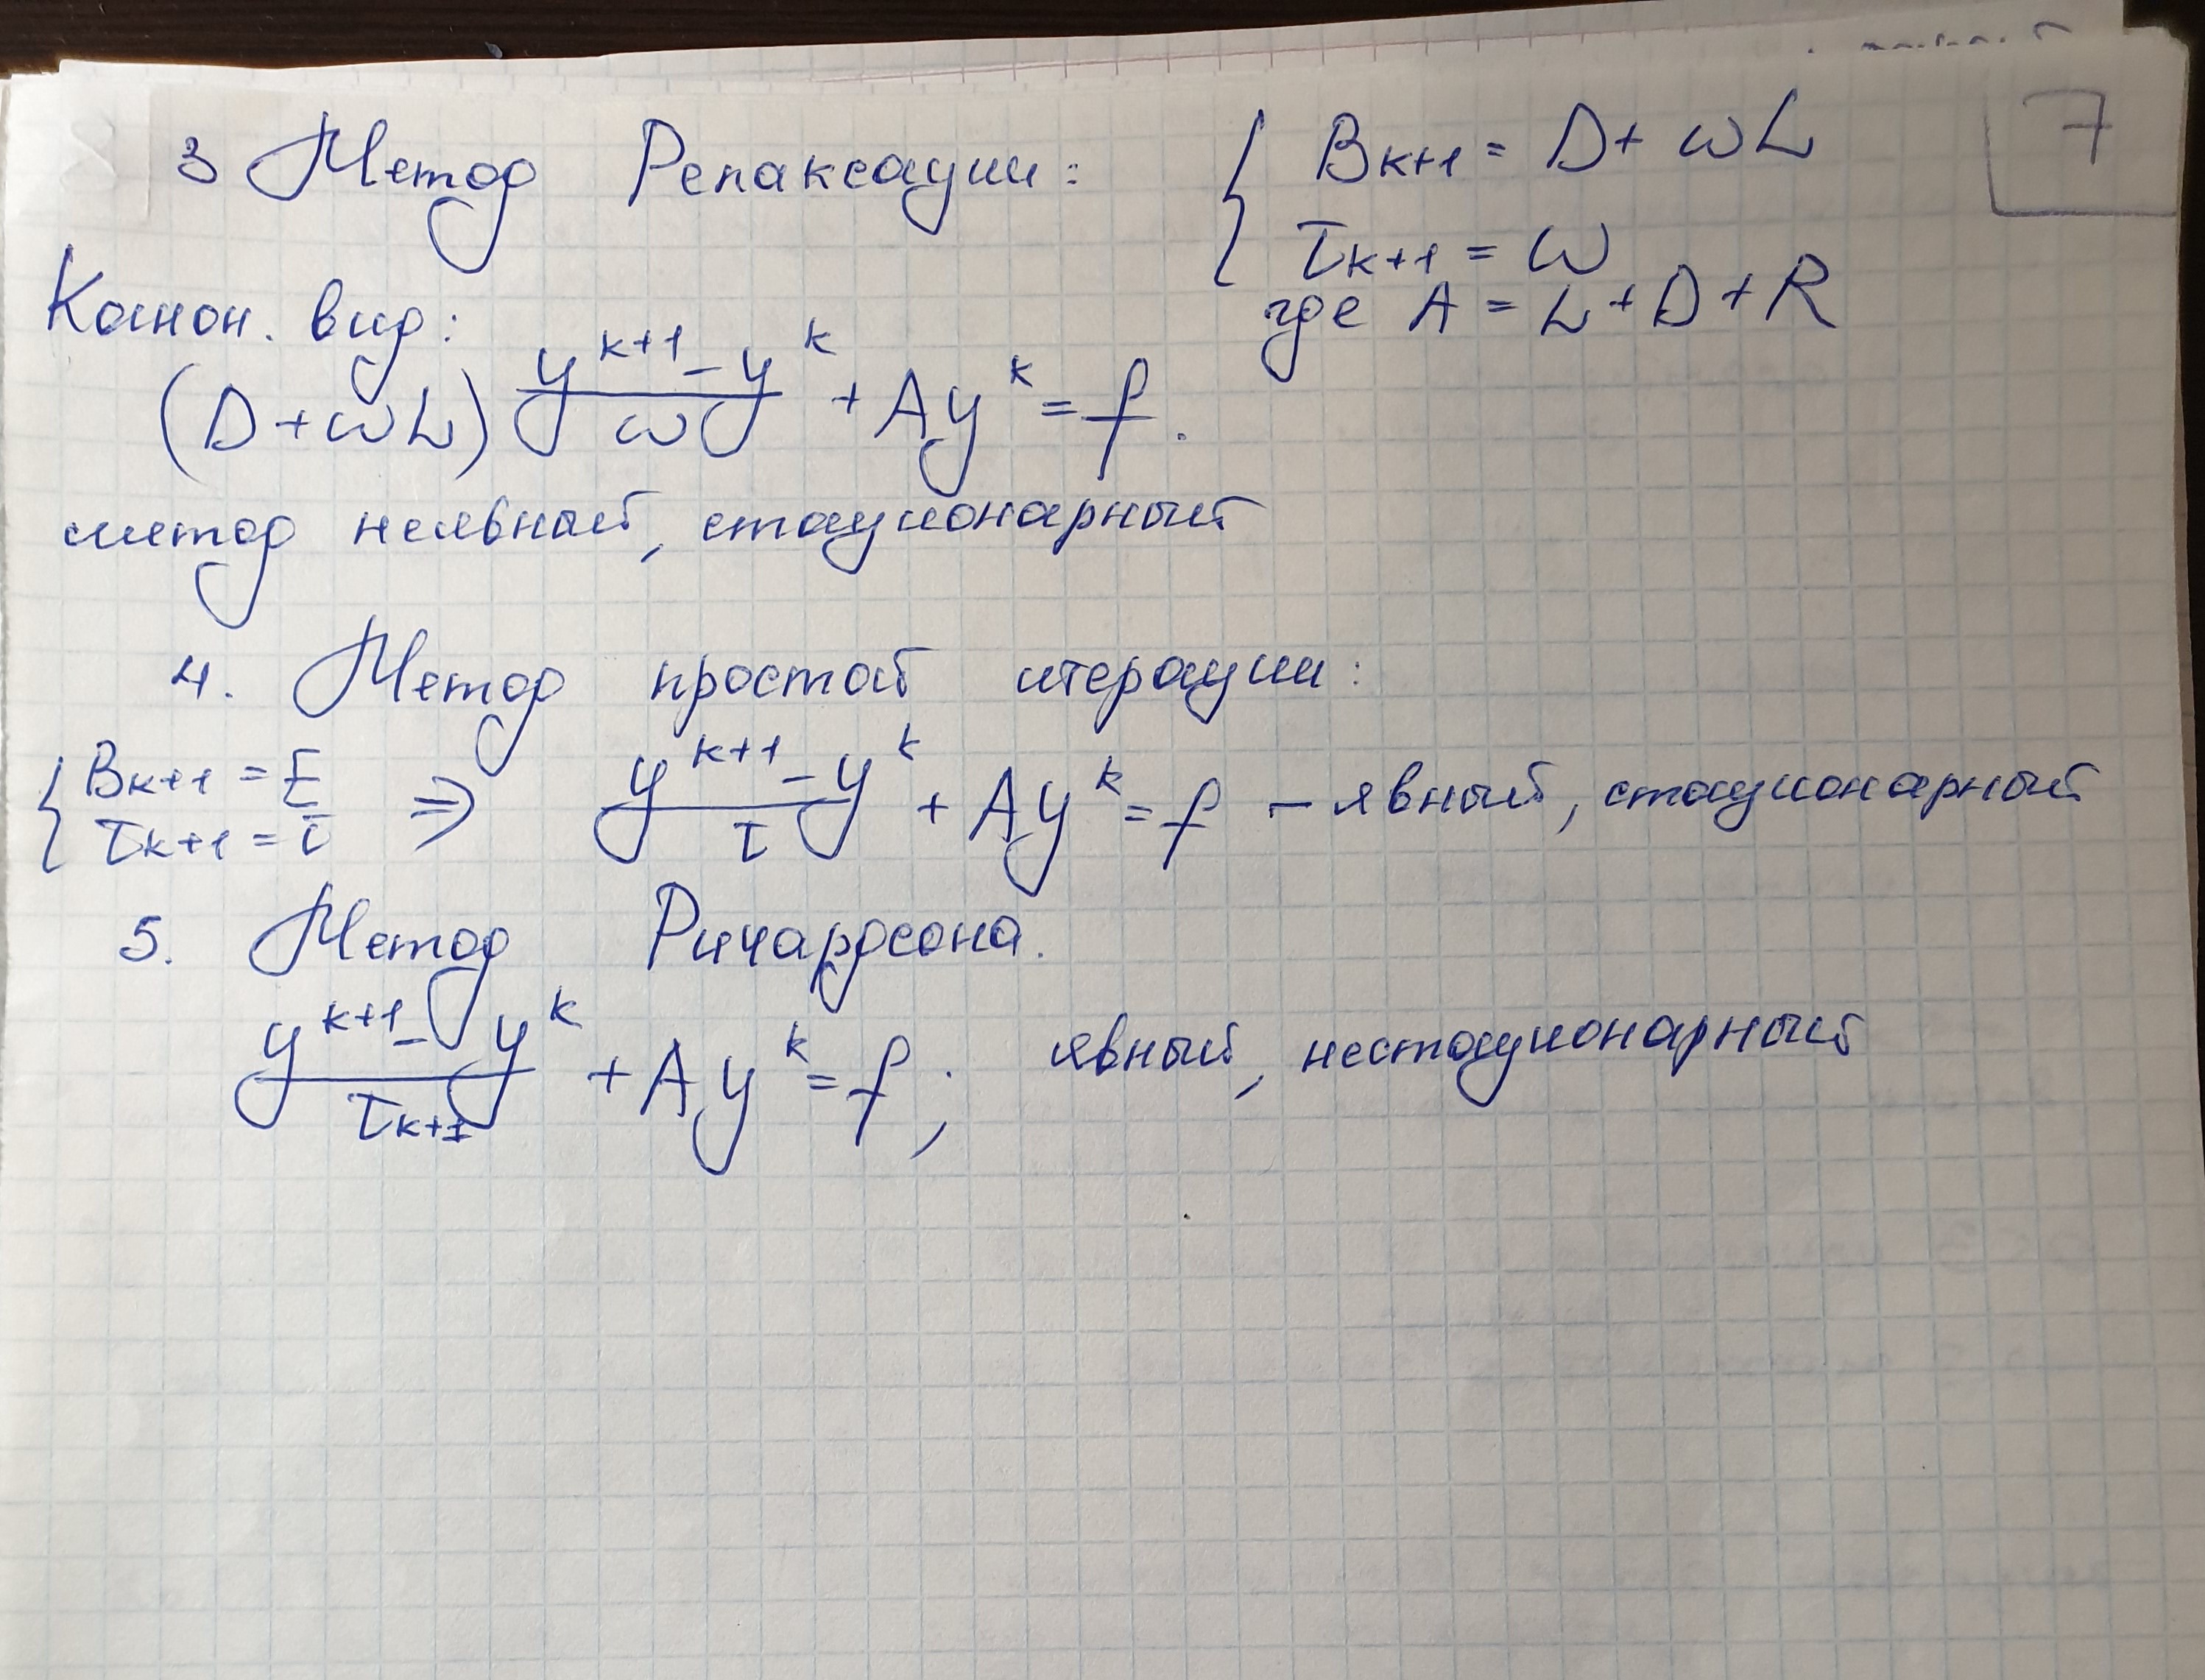 7
3 Метод Релаксации: { Bk+1 = D + ωL
τk+1 = ω
где A = L + D + R
Канон. вид:
(D + ωL) (y^{k+1} - y^k)/ω + Ay^k = f.
метод неявный, стационарный
4. Метод простой итерации:
{ Bk+1 = E
τk+1 = τ ⇒ (y^{k+1} - y^k)/τ + Ay^k = f – явный, стационарный
5. Метод Ричардсона.
(y^{k+1} - y^k)/τk+1 + Ay^k = f; явный, нестационарный